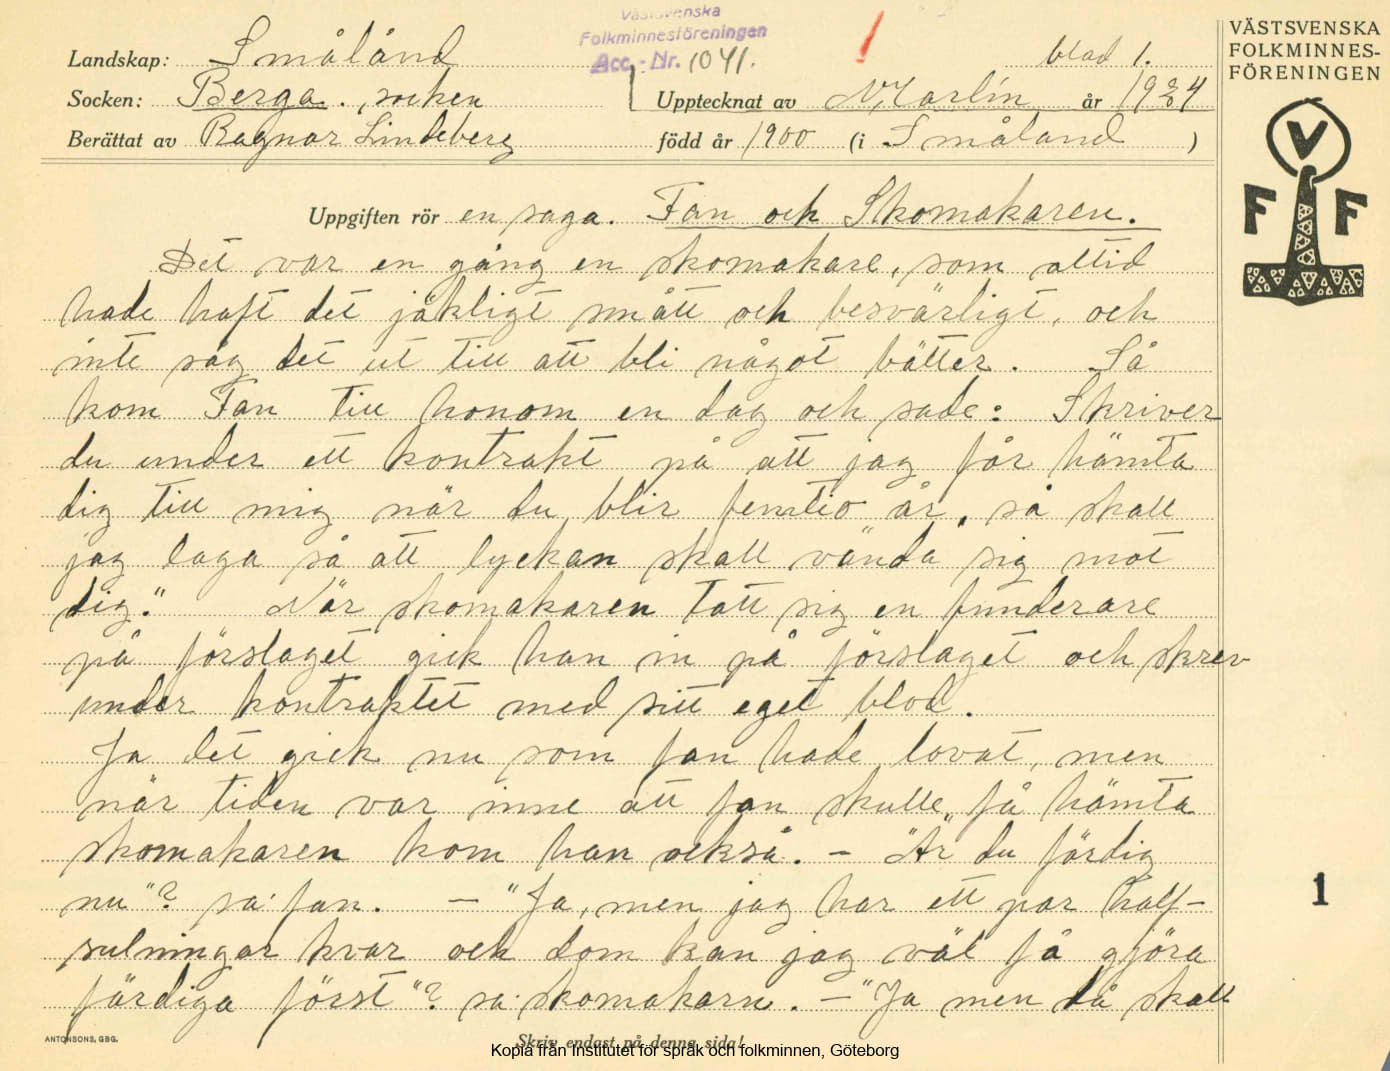 Västsvenska
Folkminnesföreningen
Acc.-Nr. 1041.
VÄSTSVENSKA
FOLKMINNES-
FÖRENINGEN
V
F F
Landskap: Småland blad 1.
Socken: Berga. socken Upptecknat av år 1924
Berättat av Ragnar Lindeberg född år 1900 (i Småland )
Uppgiften rör en saga. Fan och Skomakaren.
Det var en gång en skomakare, som alltid
hade haft det jäkligt smått och besvärligt, och
inte såg det ut till att bli något bätter. Så
kom Fan till honom en dag och sade: Skriver
du under ett kontrakt på att jag får hämta
dig till mig när du blir femtio år, så skall
jag laga så att lyckan skall vända sig mot
dig." När skomakaren tatt sig en funderare
på förslaget gick han in på förslaget och skrev
under kontraktet med sitt eget blod.
Ja det gick nu som fan hade lovat, men
när tiden var inne att fan skulle få hämta
skomakaren kom han också. – "Är du färdig
nu"? sa' fan. – "Ja, men jag har ett par half-
sulningar kvar och dom kan jag väl få gjöra
färdiga först"? sa' skomakarn. – "Ja men då skall
1
ANTONSONS, GBG.
Skriv endast på denna sida!
Kopia från Institutet för språk och folkminnen, Göteborg